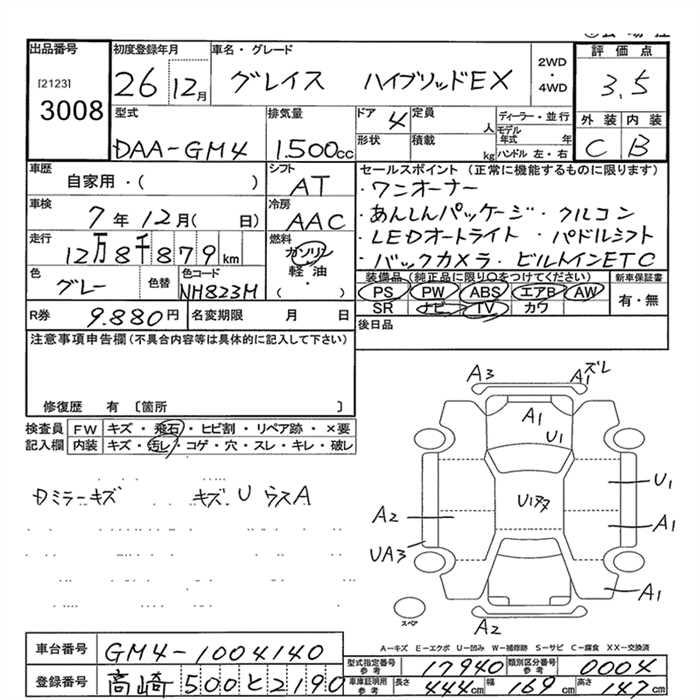 出品番号 初度登録年月 車名・グレード 2WD・4WD 評価点
[2123] 3008 26 12月 グレイス ハイブリッドEX 3.5
外装 内装
C B
型式 排気量 ドア 4 定員 人 ディーラー・並行
DAA-GM4 1.500cc 形状 積載 kg モデル年式 年 ハンドル 左・右
車歴 シフト セールスポイント (正常に機能するものに限ります)
自家用・( ) AT ・ワンオーナー
車検 冷房 ・あんしんパッケージ・クルコン
7年12月( 日) AAC ・LEDオートライト・パドルシフト
走行 燃料 ・バックカメラ・ビルトインETC
12万8千879km ガソリン 軽油 ( )
装備品 (純正品に限り○をつけてください) 新車保証書
色 グレー 色替 色コード NH823M
PS PW ABS エアB AW 有・無
SR ナビ TV カワ
R券 9.880円 名変期限 月 日 後日品
注意事項申告欄(不具合内容等は具体的に記入して下さい)
修復歴 有 〔箇所 〕
検査員 FW キズ・飛石・ヒビ割・リペア跡・×要
記入欄 内装 キズ・汚レ・コゲ・穴・スレ・キレ・破レ
Dミラーキズ キズ U ウスA
A3 A1 ズレ
A1
U1
U1
A2 A1
UA3
A1
スペア
A2
A-キズ E-エクボ U-凹み W-補修跡 S-サビ C-腐食 XX-交換済
車台番号 GM4-1004140
型式指定番号 参考 17940 類別区分番号 参考 0004
登録番号 高崎 500 と 2190
車庫証明用 参考 長さ 444cm 幅 169cm 高さ 147cm